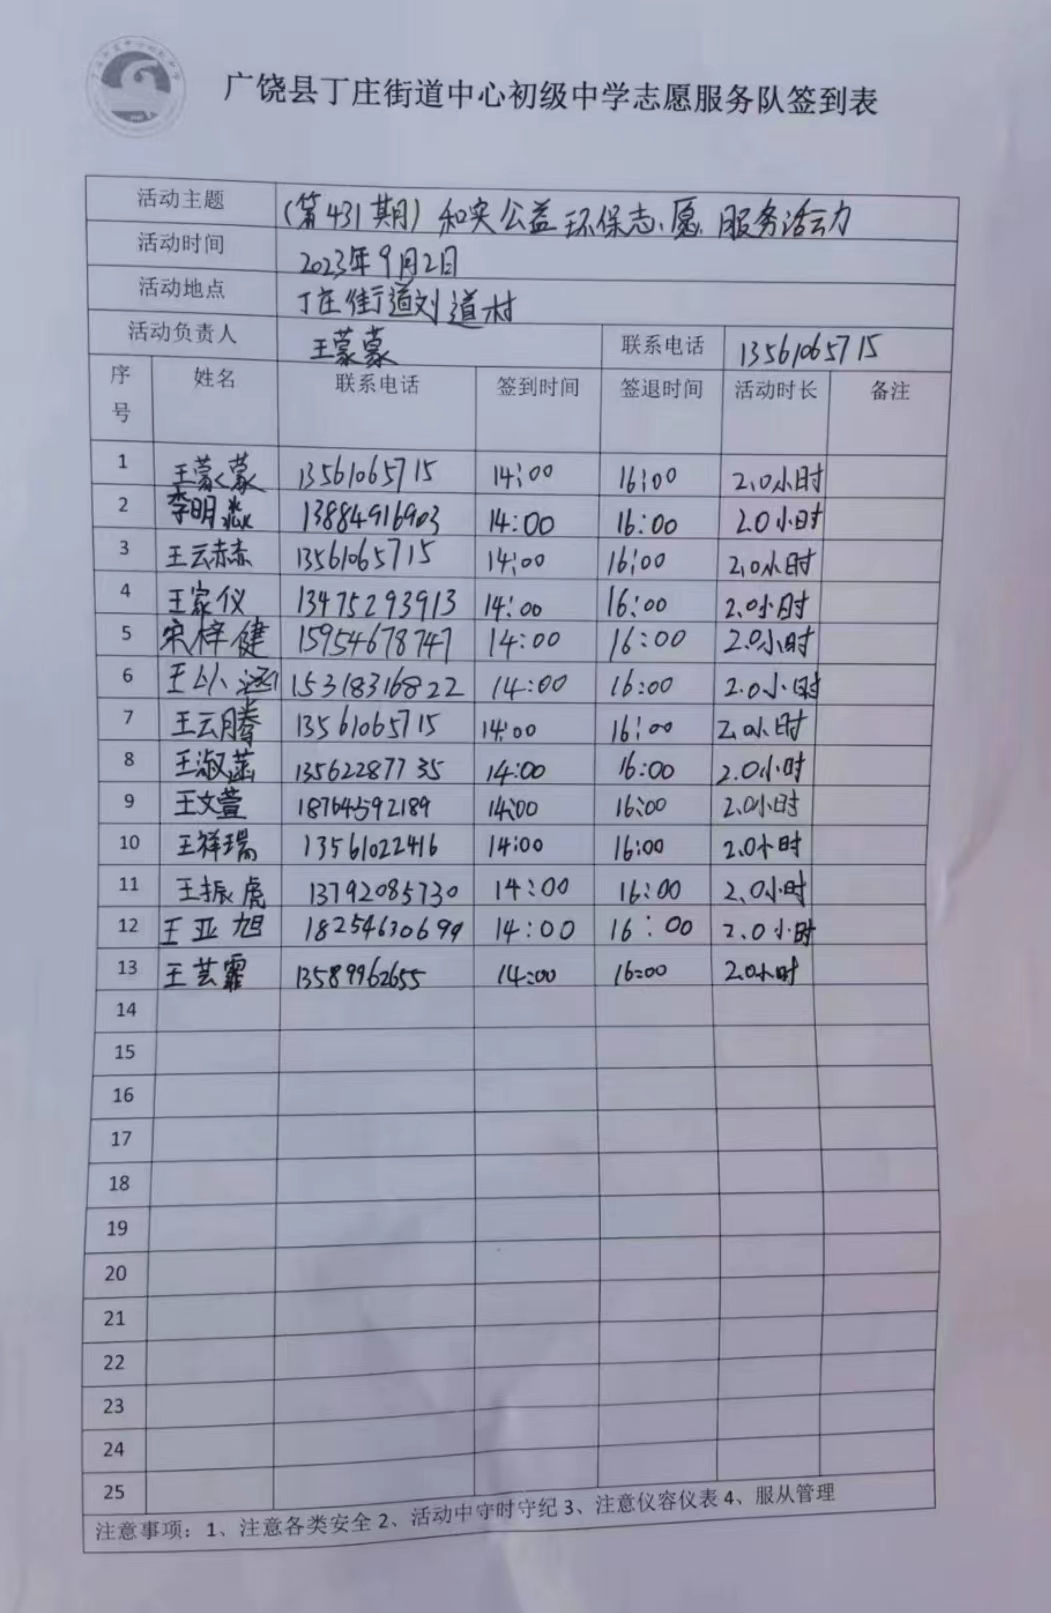 广饶县丁庄街道中心初级中学志愿服务队签到表
活动主题 (第431期) 和实公益环保志愿服务活动
活动时间 2023年9月2日
活动地点 丁庄街道刘道村
活动负责人 王蒙蒙 联系电话 13561065715
序号 姓名 联系电话 签到时间 签退时间 活动时长 备注
1 王蒙蒙 13561065715 14:00 16:00 2.0小时
2 李明淼 13884916903 14:00 16:00 2.0小时
3 王云赫 13561065715 14:00 16:00 2.0小时
4 王家仪 13475293913 14:00 16:00 2.0小时
5 宋梓健 15954678747 14:00 16:00 2.0小时
6 王小涵 15318316822 14:00 16:00 2.0小时
7 王云腾 13561065715 14:00 16:00 2.0小时
8 王淑菡 13562287735 14:00 16:00 2.0小时
9 王文萱 18764592189 14:00 16:00 2.0小时
10 王祥瑞 13561022416 14:00 16:00 2.0小时
11 王振虎 13792085730 14:00 16:00 2.0小时
12 王亚旭 18254630699 14:00 16:00 2.0小时
13 王芸霏 13589962655 14:00 16:00 2.0小时
14
15
16
17
18
19
20
21
22
23
24
25
注意事项：1、注意各类安全 2、活动中守时守纪 3、注意仪容仪表 4、服从管理